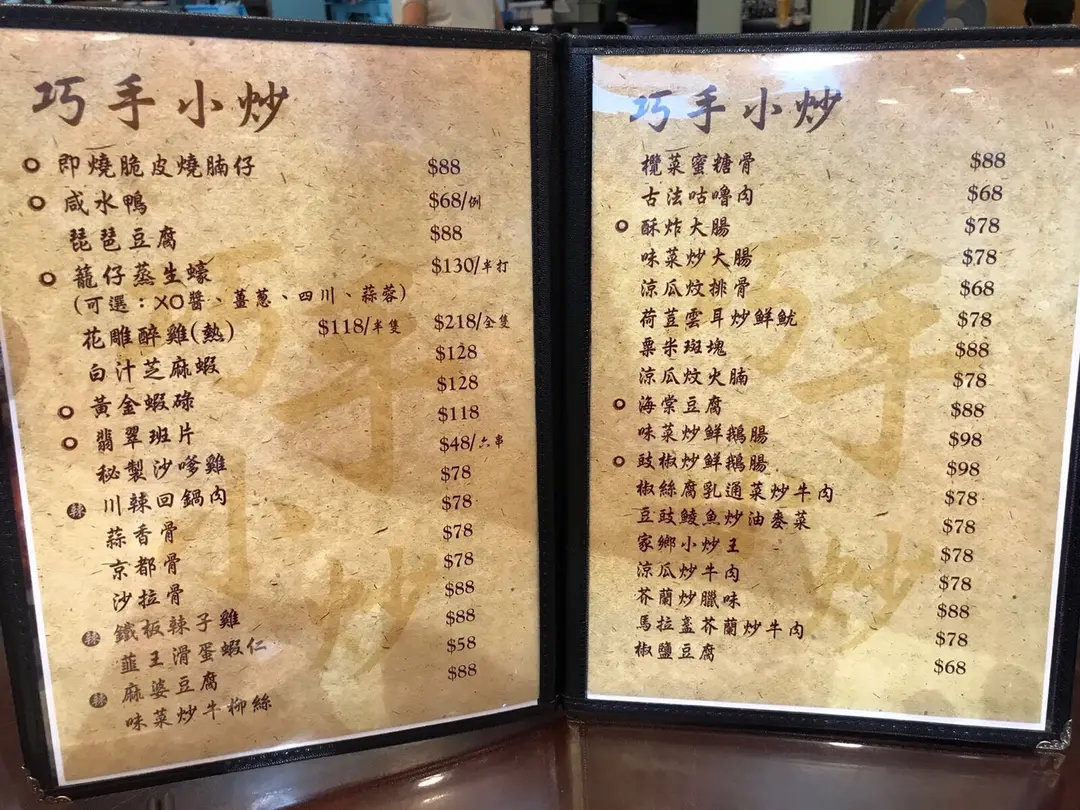 巧手小炒
即燒脆皮燒腩仔 $88
咸水鴨 $68/例
琵琶豆腐 $88
籠仔蒸生蠔 $130/半打
(可選：XO醬、薑蔥、四川、蒜蓉)
花雕醉雞(熱) $118/半隻 $218/全隻
白汁芝麻蝦 $128
黃金蝦碌 $128
翡翠班片 $118
秘製沙嗲雞 $48/六串
辣 川辣回鍋肉 $78
蒜香骨 $78
京都骨 $78
沙拉骨 $78
辣 鐵板辣子雞 $88
韮王滑蛋蝦仁 $88
辣 麻婆豆腐 $58
味菜炒牛柳絲 $88
巧手小炒
欖菜蜜糖骨 $88
古法咕嚕肉 $68
酥炸大腸 $78
味菜炒大腸 $78
涼瓜炆排骨 $68
荷荳雲耳炒鮮魷 $78
粟米斑塊 $88
涼瓜炆火腩 $78
海棠豆腐 $88
味菜炒鮮鵝腸 $98
豉椒炒鮮鵝腸 $98
椒絲腐乳通菜炒牛肉 $78
豆豉鯪魚炒油麥菜 $78
家鄉小炒王 $78
涼瓜炒牛肉 $78
芥蘭炒臘味 $88
馬拉盞芥蘭炒牛肉 $78
椒鹽豆腐 $68